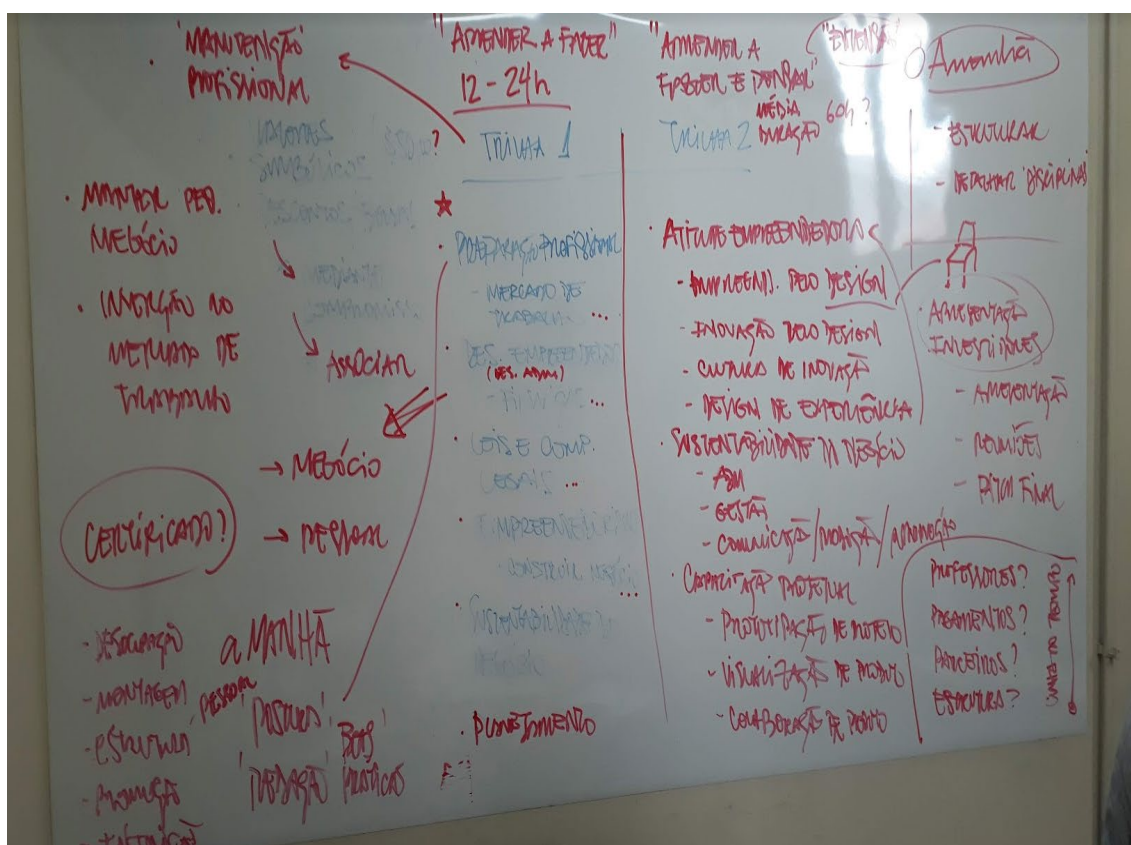 'MANUTENÇÃO'
PROFISSIONAL
VALORES
SIMBÓLICOS $50,00?
· MANTER PEQ.
NEGÓCIO
· INSERÇÃO NO
MERCADO DE
TRABALHO
MEDIANTE
ASSOCIAR
→ NEGÓCIO
CERTIFICADO? → PESSOAL
- DESOCUPAÇÃO
- MONTAGEM
- ESTRUTURA
- PROMOÇÃO
aMANHÃ
PESSOAL
'POSTURA'
BOAS
PRÁTICAS
"APRENDER A FAZER"
12-24h
TRILHA 1
· PREPARAÇÃO PROFISSIONAL
- MERCADO DE
TRABALH. ...
DES. EMPREENDEDOR
(DES. ADM)
...
· LEIS E COMP.
LEGAIS ...
· EMPREENDEDORISMO
- CONSTRUIR NEGÓCIO
...
· SUSTENTABILIDADE DO
NEGÓCIO
· PLANEJAMENTO
"APRENDER A
FAZER E PENSAR"
MÉDIA
DURAÇÃO 60h?
TRILHA 2
· ATITUDE EMPREENDEDORA
- EMPREEND. PELO DESIGN
- INOVAÇÃO PELO DESIGN
- CULTURA DE INOVAÇÃO
- DESIGN DE EXPERIÊNCIA
· SUSTENTABILIDADE DO NEGÓCIO
- ADM
- GESTÃO
- COMUNICAÇÃO / / PROMOÇÃO
· CAPACITAÇÃO PROJETUAL
- PROTOTIPAÇÃO DE PROJETO
- VISUALIZAÇÃO DE PRODUTO
- COLABORAÇÃO DE PONTO
"EXTENSÃO"
Amanhã
- ESTRUTURAR
- DETALHAR 'DISCIPLINAS'
· APRESENTAÇÃO
INVESTIDORES
- APRESENTAÇÃO
- REUNIÕES
- PITCH FINAL
PROFESSORES?
PAGAMENTOS?
PARCEIROS?
ESTRUTURA?
LINHA DO TEMPO